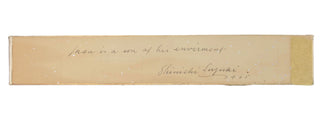 is a son of his enviroment.
Shinichi Suzuki